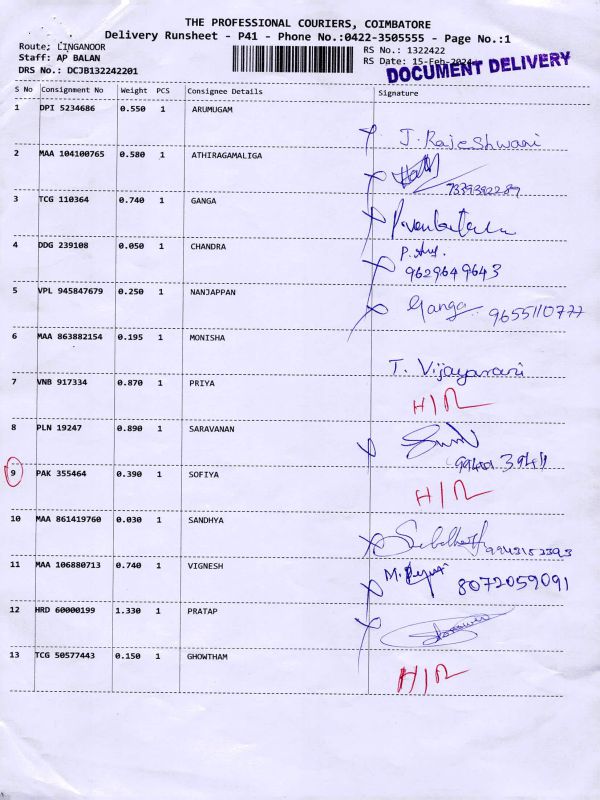 THE PROFESSIONAL COURIERS, COIMBATORE
Delivery Runsheet - P41 - Phone No.:0422-3505555 - Page No.:1
Route; LINGANOOR
RS No.: 1322422
Staff: AP BALAN
RS Date: 15-Feb-2024
DRS No.: DCJB132242201
DOCUMENT DELIVERY
S No Consignment No Weight PCS Consignee Details Signature
1 DPI 5234686 0.550 1 ARUMUGAM
J. Rajeshwari
2 MAA 104100765 0.580 1 ATHIRAGAMALIGA
7339392289
3 TCG 110364 0.740 1 GANGA
4 DDG 239108 0.050 1 CHANDRA
9629649643
5 VPL 945847679 0.250 1 NANJAPPAN
Ganga 9655110777
6 MAA 863882154 0.195 1 MONISHA
T. Vijayarani
7 VNB 917334 0.870 1 PRIYA
H/R
8 PLN 19247 0.890 1 SARAVANAN
9 PAK 355464 0.390 1 SOFIYA
H/R
10 MAA 861419760 0.030 1 SANDHYA
11 MAA 106880713 0.740 1 VIGNESH
8072059091
12 HRD 60000199 1.330 1 PRATAP
13 TCG 50577443 0.150 1 GHOWTHAM
H/R